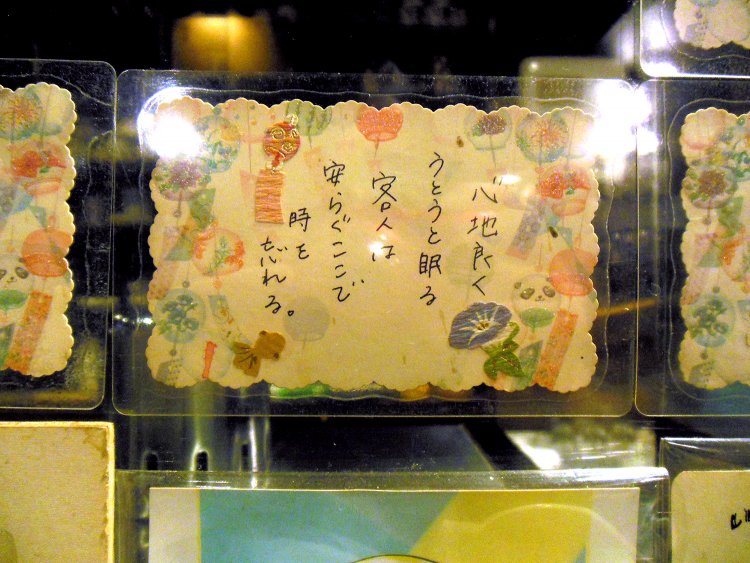 心地良く
うとうと眠る
客人は
安らぐここで
時を
忘れる。